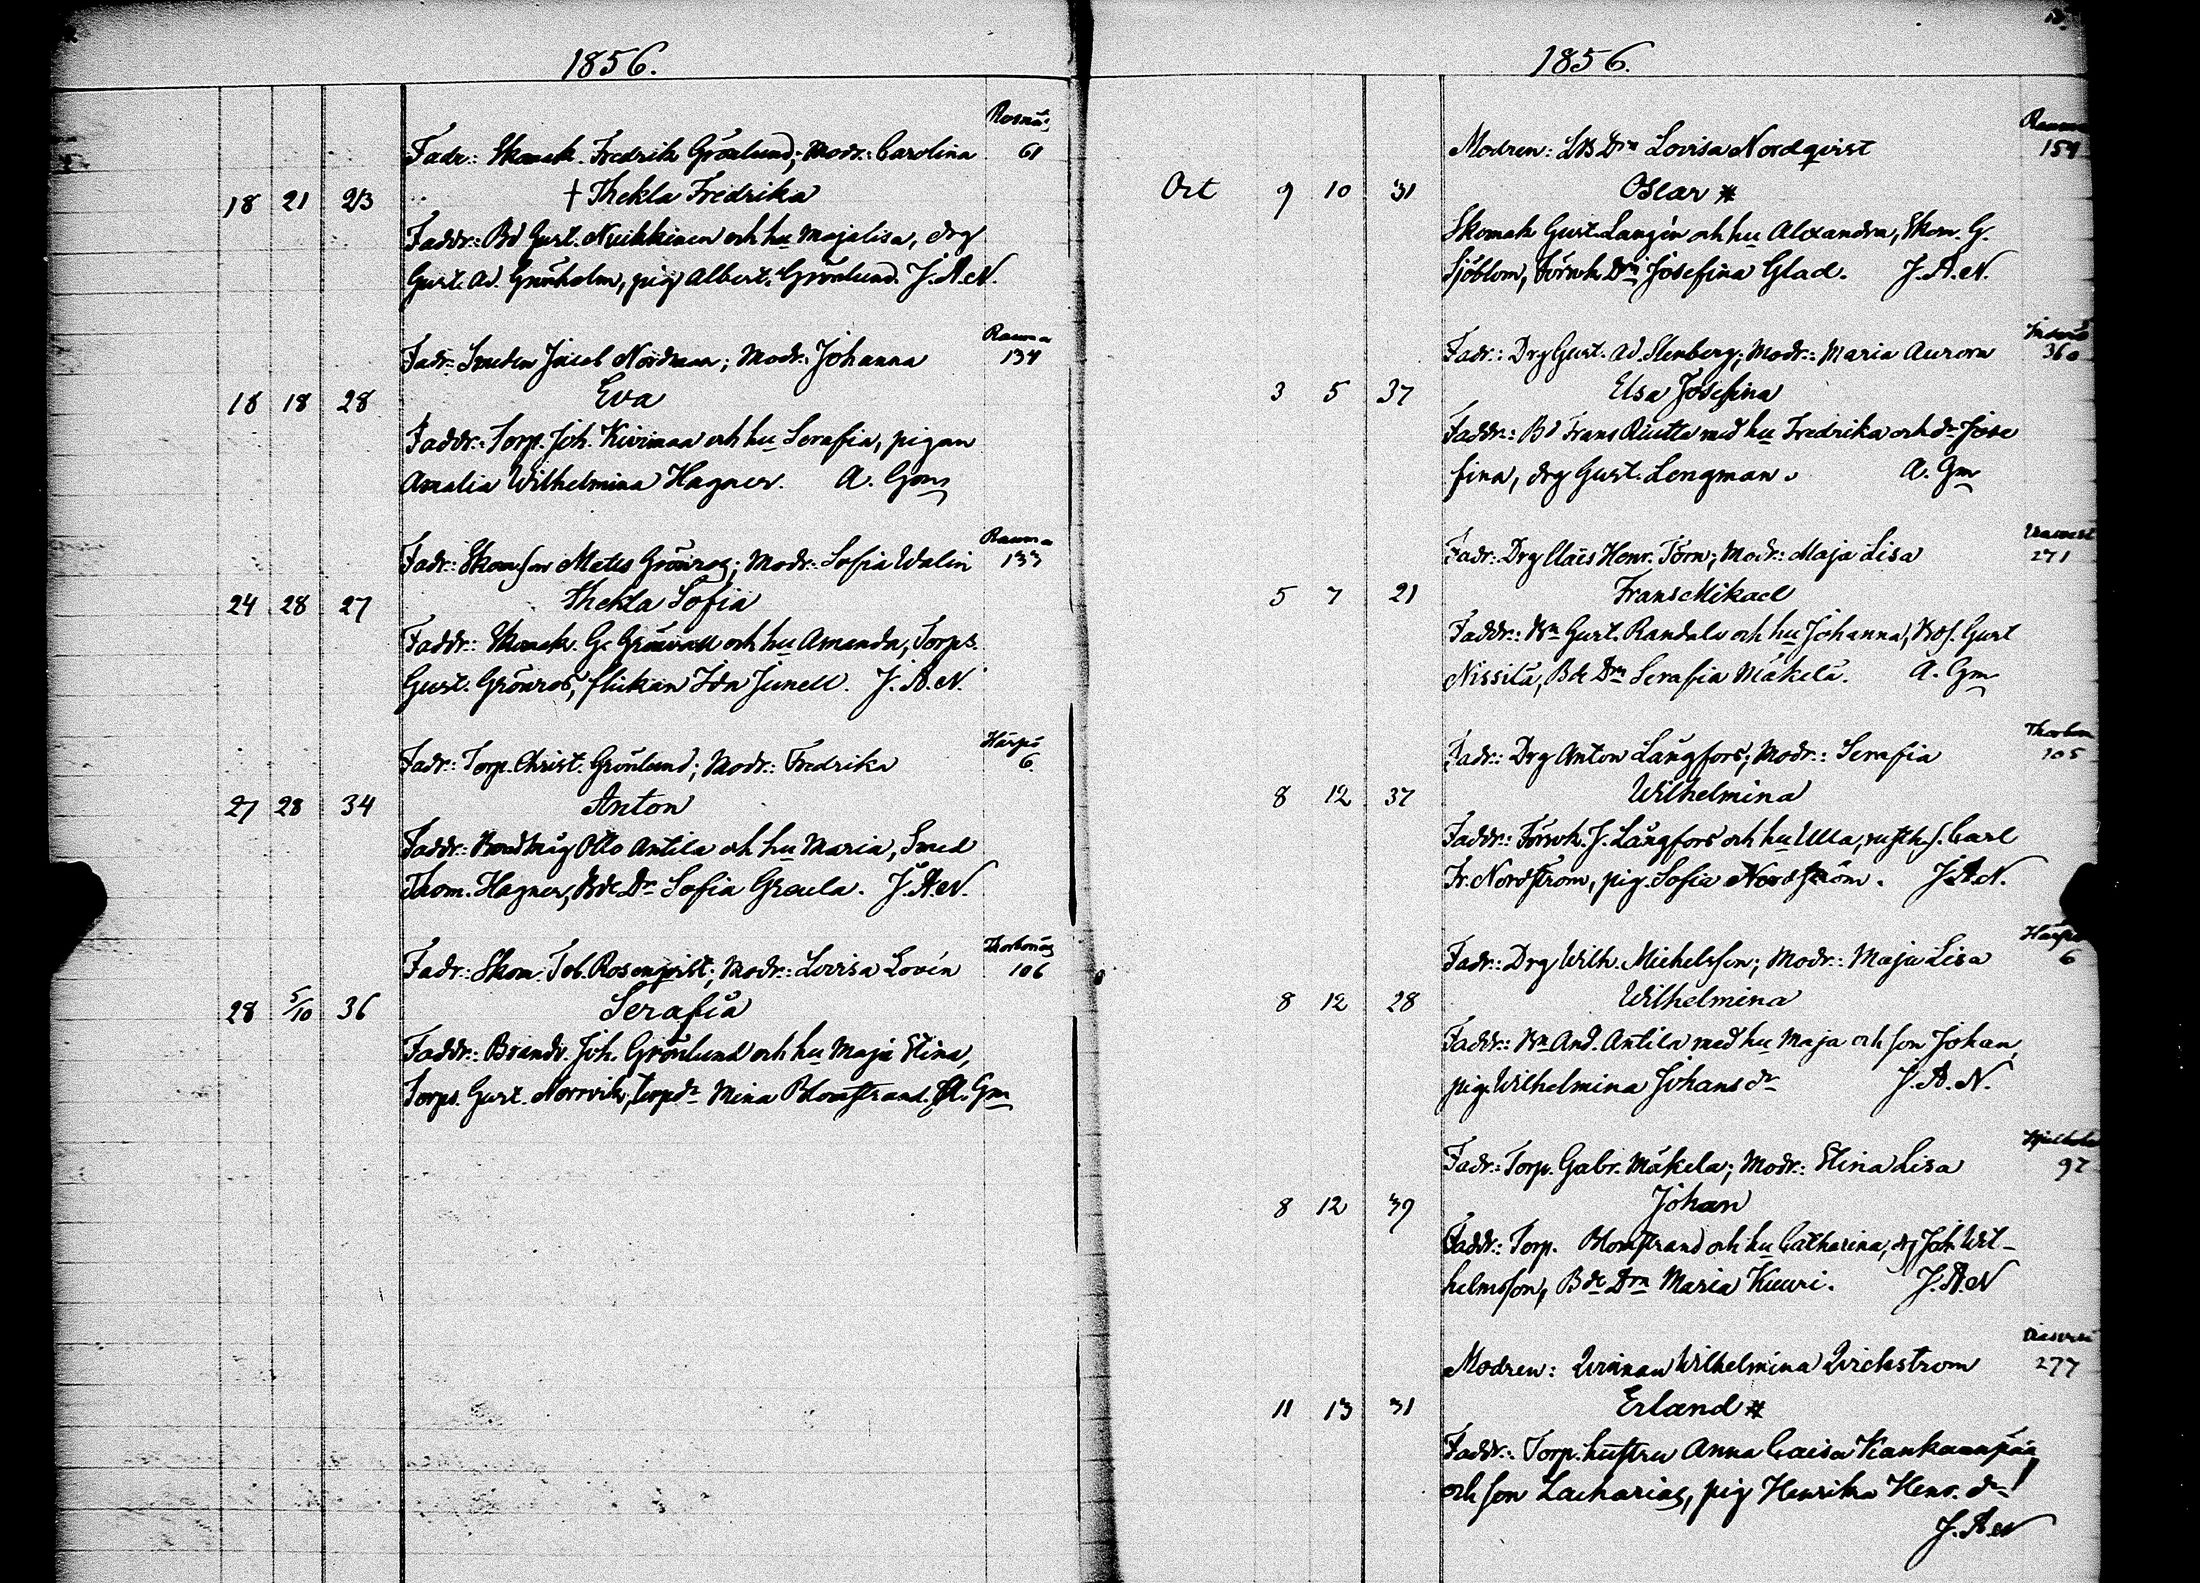 1856.
Rosnäs
Fadr: Skomak. Fredrik Grönlund; Modr: Carolina 61
18 21 23 † Thekla Fredrika
Faddr: Bd Gust. Nuikkinen och hu Majalisa, drg
Gust. Ad. Grönholm, pig Albert. Grönlund. J. A. N.
Rauma
Fadr: Smeden Jacob Nordman; Modr: Johanna 134
18 18 28 Eva
Faddr: Torp. Joh. Kivimaa och hu Serafia, pigan
Amalia Wilhelmina Hagner. A. Gm
Rauma
Fadr: Skom son Matts Grönros; Modr: Sofia Walin 133
24 28 27 Thekla Sofia
Faddr: Skomak. G. Grönvall och hu Amanda, Torps.
Gust. Grönros, flickan Ida Junell. J. A. N.
Harpö
Fadr: Torp. Christ. Grönlund; Modr: Fredrika 6.
27 28 34 Anton
Faddr: Otto Antila och hu Maria, Smed
Thom. Hagner, Bde Dr Sofia Greula. J. A. N.
Thorbonäs
Fadr: Skom. Tob. Rosenqvist; Modr: Lovisa Lovén 106
28 5/10 36 Serafia
Faddr: Brandv. Joh. Grönlund och hu Maja Stina,
Torps. Gust. Norrvik, torpdr Mina Blomstrand. A. Gm
1856.
Rauma
Modren: Drn Lovisa Nordqvist 154
Oct 9 10 31 Oscar #
Skomak Gust. Langén och hu Alexandra, Skom. G.
Sjöblom, Förvrk Drn Josefina Glad. J. A. N.
Fadr: Drg Gust. Ad. Stenberg; Modr: Maria Aurora 360
3 5 37 Elsa Josefina
Faddr: Bd Frans Riutta med hu Fredrika och dr Jose
fina, drg Gust. Lengman. A. Gm
Fadr: Drg Claes Henr. Törn; Modr: Maja Lisa 271
5 7 21 Frans Mikael
Faddr: Bn Gust. Randala och hu Johanna, Bds. Gust
Nissilä, Bde Drn Serafia Mäkelä. A. Gm
Thorbon
Fadr: Drg Anton Långfors; Modr: Serafia 105
8 12 37 Wilhelmina
Faddr: Förvrk. J. Långfors och hu Ulla, rusth. s. Carl
Fr. Nordström, pig. Sofia Nordström. J. A. N.
Harpö
Fadr: Drg Wilh. Michelsson; Modr: Maja Lisa 6
8 12 28 Wilhelmina
Faddr: Bn And. Antila med hu Maja och son Johan,
pig. Wilhelmina Johans dr J. A. N.
Fadr: Torp. Gabr. Mäkelä; Modr: Stina Lisa 97
8 12 39 Johan
Faddr: Torp. Blomstrand och hu Catharina, drg Joh. Wil-
helmsson, Bde Drn Maria Kuuri. J. A. N
Modren: Qvinnan Wilhelmina Qvickström 277
11 13 31 Erland #
Faddr: Torp. hustru Anna Caisa Kankaanpää
och son Zacharias, pig Henrika Henr. dr
J. A. N